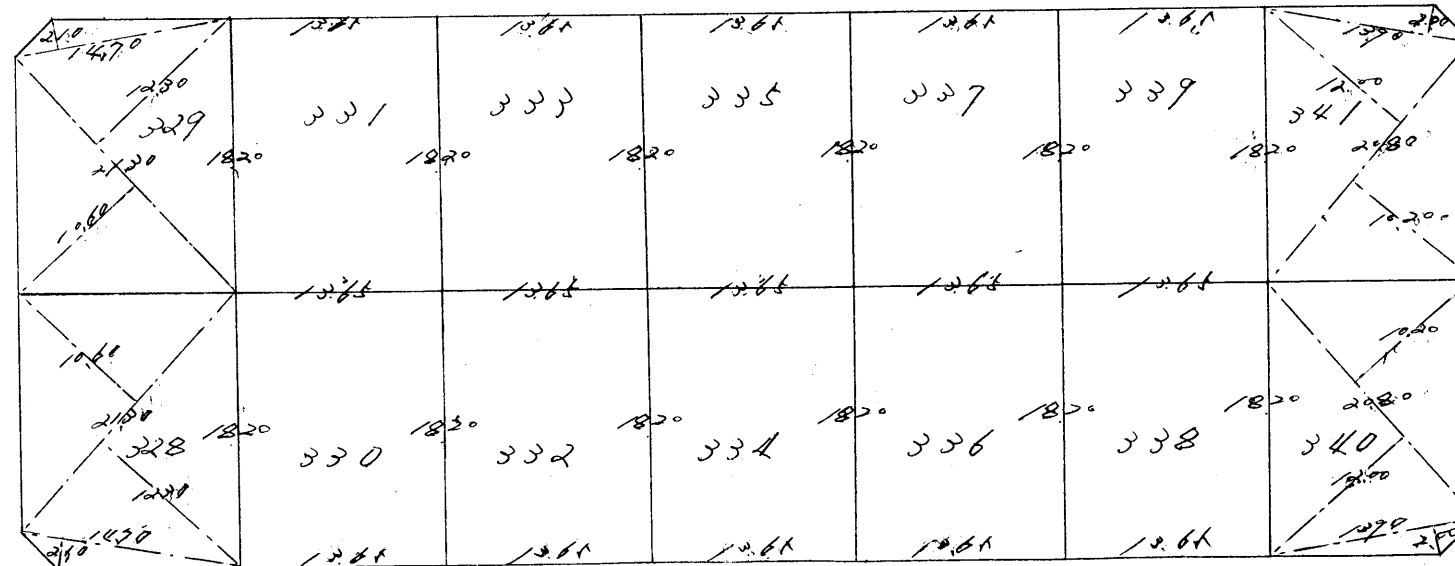 13.65 13.65 13.65 13.65 13.65
2.10 14.70 13.90 2.00
12.30 12.00
329 331 333 335 337 339 341
21.30 18.20 18.20 18.20 18.20 18.20 18.20 20.80
10.60 10.200
13.65 13.65 13.65 13.65 13.65
10.60 10.20
21.30 18.20 18.20 18.20 18.20 18.20 18.20 20.80
328 330 332 334 336 338 340
12.30 12.00
2.10 14.70 13.90 2.00
13.65 13.65 13.65 13.65 13.65